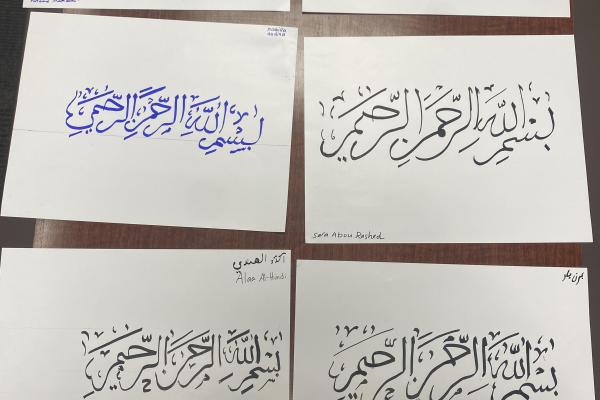 بسم الله الرحمن الرحيم
بسم الله الرحمن الرحيم
Sara Abou Rashed
الهندي
Alaa Al-Hindi
بسم الله الرحمن الرحيم
بسم الله الرحمن الرحيم